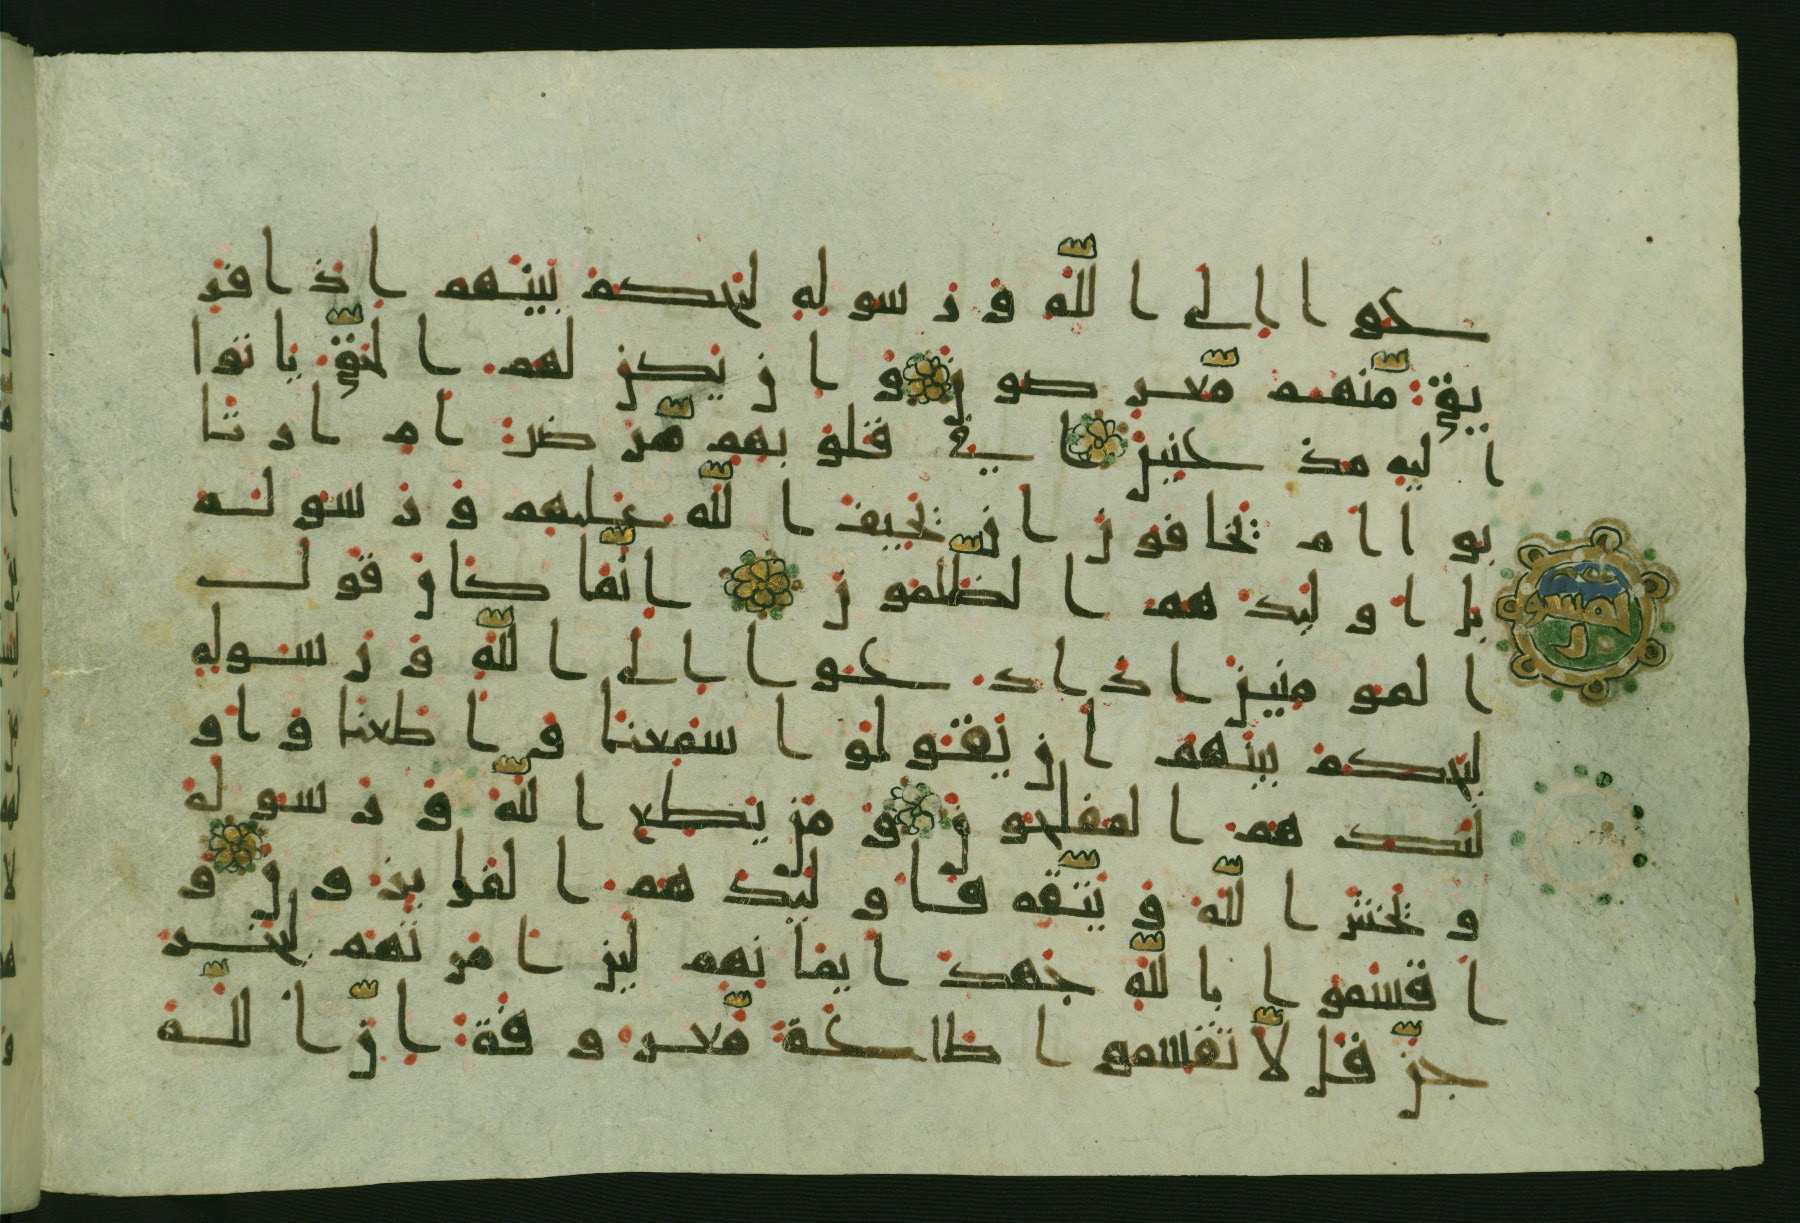 عوا الى الله ورسوله ليحكم بينهم اذا فر
يق منهم معرضون وان يكن لهم الحق ياتوا
اليه مذعنين ا في قلوبهم مرض ام ارتا
بوا ام يخافون ان يحيف الله عليهم ورسوله
بل اوليك هم الظلمون انما كان قول
المومنين اذا دعوا الى الله ورسوله
ليحكم بينهم ان يقولوا سمعنا واطعنا واو
ليك هم المفلحون ومن يطع الله ورسوله
ويخش الله ويتقه فاوليك هم الفايزون و
اقسموا بالله جهد ايمانهم لين امرتهم ليخر
جن قل لا تقسموا طاعة معروفة ان الله
خمسون